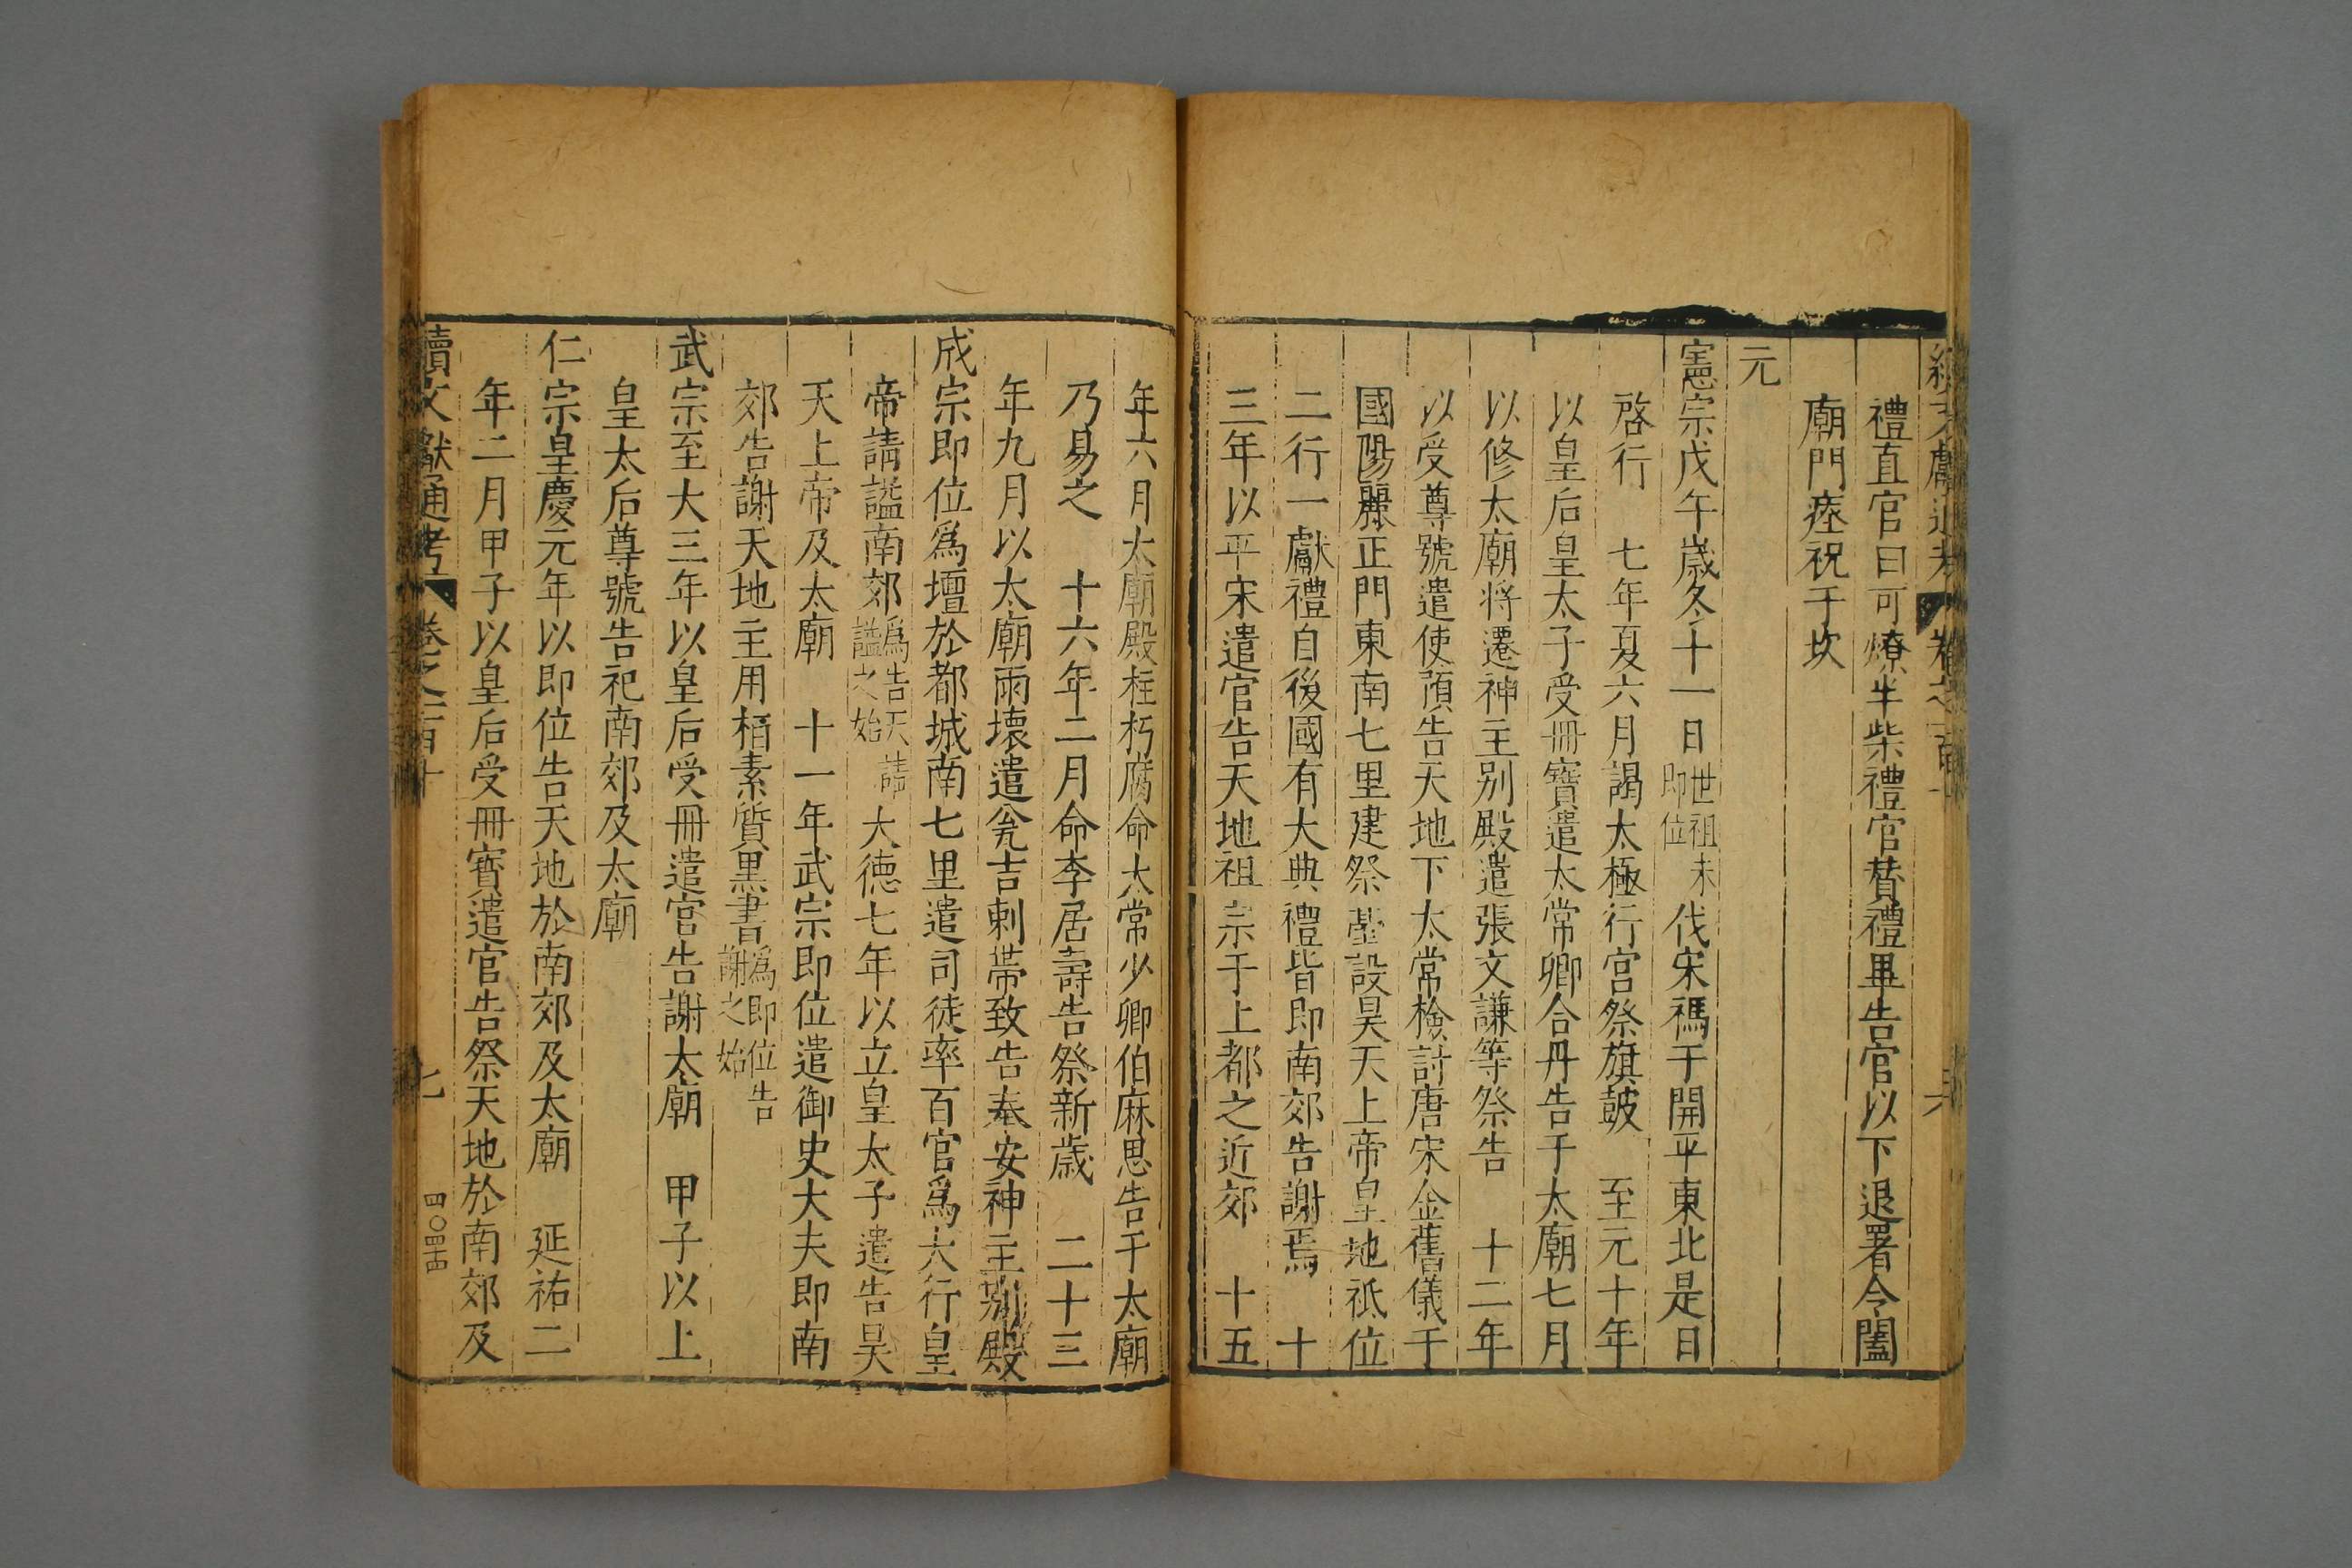 禮直官曰可燎半柴禮官贊禮畢告官以下退署令闔
廟門瘞祝于坎
元
憲宗戊午歲冬十一日世祖未即位伐宋禡于開平東北是日
啓行 七年夏六月謁太極行宫祭旗皷 至元十年
以皇后皇太子受冊寶遣太常卿合丹告于太廟七月
以修太廟將遷神主别殿遣張文謙等祭告 十二年
以受尊號遣使預告天地下太常檢討唐宋金舊儀于
國陽麗正門東南七里建祭臺設昊天上帝皇地祇位
二行一獻禮自後國有大典禮皆即南郊告謝焉 十
三年以平宋遣官告天地祖宗于上都之近郊 十五
年六月太廟殿柱朽腐命太常少卿伯麻思告于太廟
乃易之 十六年二月命李居壽告祭新歲 二十三
年九月以太廟雨壞遣瓮吉剌帶致告奉安神主别殿
成宗即位爲壇於都城南七里遣司徒率百官爲大行皇
帝請謚南郊爲告天請謚之始 大德七年以立皇太子遣告昊
天上帝及太廟 十一年武宗即位遣御史大夫即南
郊告謝天地主用栢素質黒書爲即位告謝之始
武宗至大三年以皇后受冊遣官告謝太廟 甲子以上
皇太后尊號告祀南郊及太廟
仁宗皇慶元年以即位告天地於南郊及太廟 延祐二
年二月甲子以皇后受冊寳遣官告祭天地於南郊及
續文獻通考 卷之一百十 七 四〇四十四